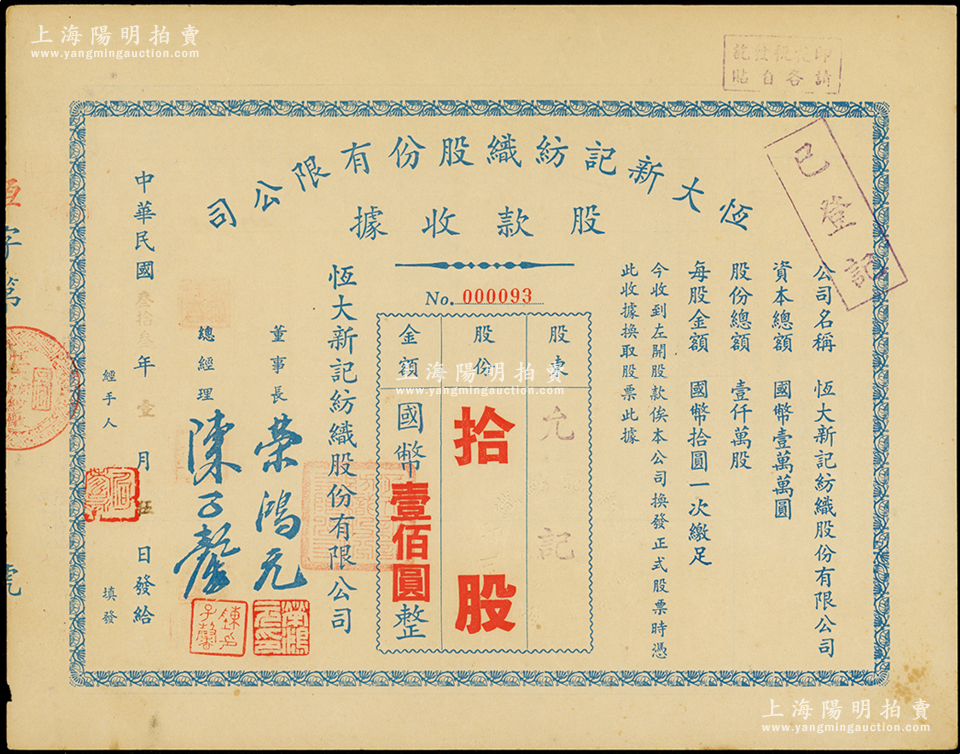 上海陽明拍賣
www.yangmingauction.com
印花稅票
請各自貼
已登記
恆大新記紡織股份有限公司
股款收據
No. 000093
公司名稱 恆大新記紡織股份有限公司
資本總額 國幣壹萬萬圓
股份總額 壹仟萬股
每股金額 國幣拾圓一次繳足
今收到左開股款俟本公司換發正式股票時憑
此收據換取股票此據
股東 允記
股份 拾股
金額 國幣壹佰圓整
恆大新記紡織股份有限公司
董事長 榮鴻元
總經理 陳子馨
中華民國叁拾叁年壹月伍日發給
經手人 填發
恆字第 號
上海陽明拍賣
www.yangmingauction.com
上海陽明拍賣
www.yangmingauction.com